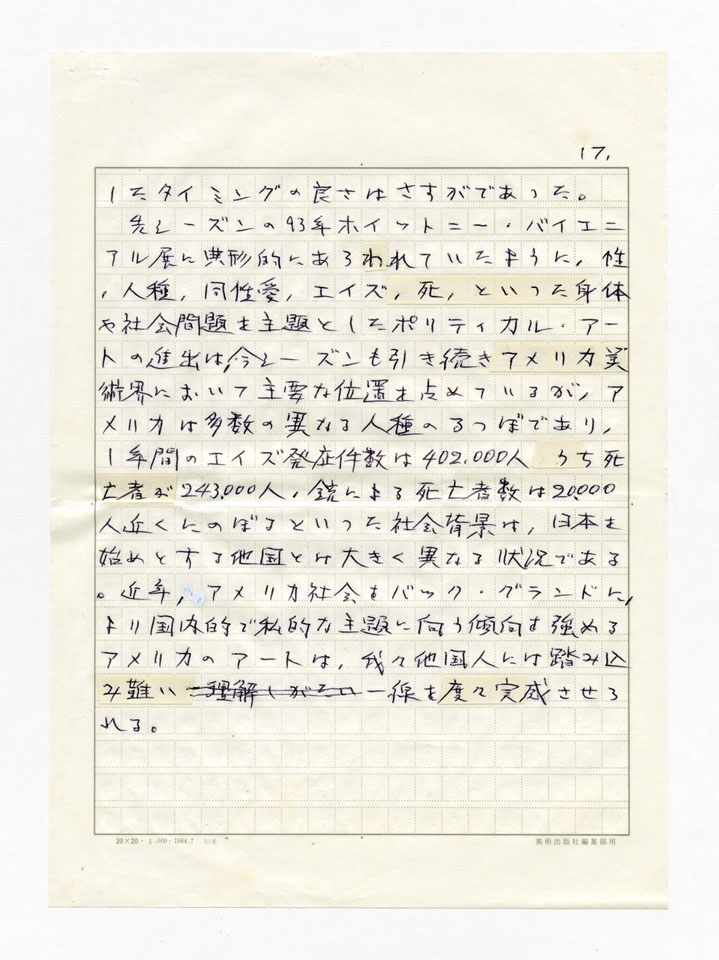 17.
したタイミングの良さはさすがであった。
先シーズンの93年ホイットニー・バイエニ
アル展に典形的にあらわれていたように、性
、人種、同性愛、エイズ、死、といった身体
や社会問題を主題としたポリティカル・アー
トの進出は、今シーズンも引き続きアメリカ美
術界において主要な位置を占めているが、ア
メリカは多数の異なる人種のるつぼであり、
1年間のエイズ発症件数は402,000人 うち死
亡者が243,000人、銃による死亡者数は20,000
人近くにのぼるといった社会背景は、日本を
始めとする他国とは大きく異なる状況である
。近年、アメリカ社会をバック・グランドに、
より国内的で私的な主題に向う傾向を強める
アメリカのアートは、我々他国人には踏み込
み難い 理解しがたい 一線を度々完感させら
れる。
20×20・5,000・1984.7
美術出版社編集部用